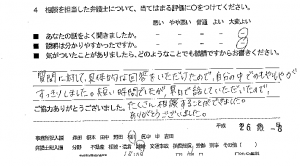 4 相談を担当した弁護士について、当てはまる評価に○をつけてください。
悪い やや悪い 普通 よい 大変よい
■ あなたの話をよく聞きましたか。
■ 説明は分かりやすかったですか。
■ 気がついたことがありましたら、どのようなことでも結構ですからお書きください。
質問に対して、具体的な回答をいただけたので、自分の中でのもやもやが
すっきりしました。短い時間でしたが、早口で話していただいたので
たくさん相談することができました。
ありがとうございました。
ご協力ありがとうございました。
平成 26